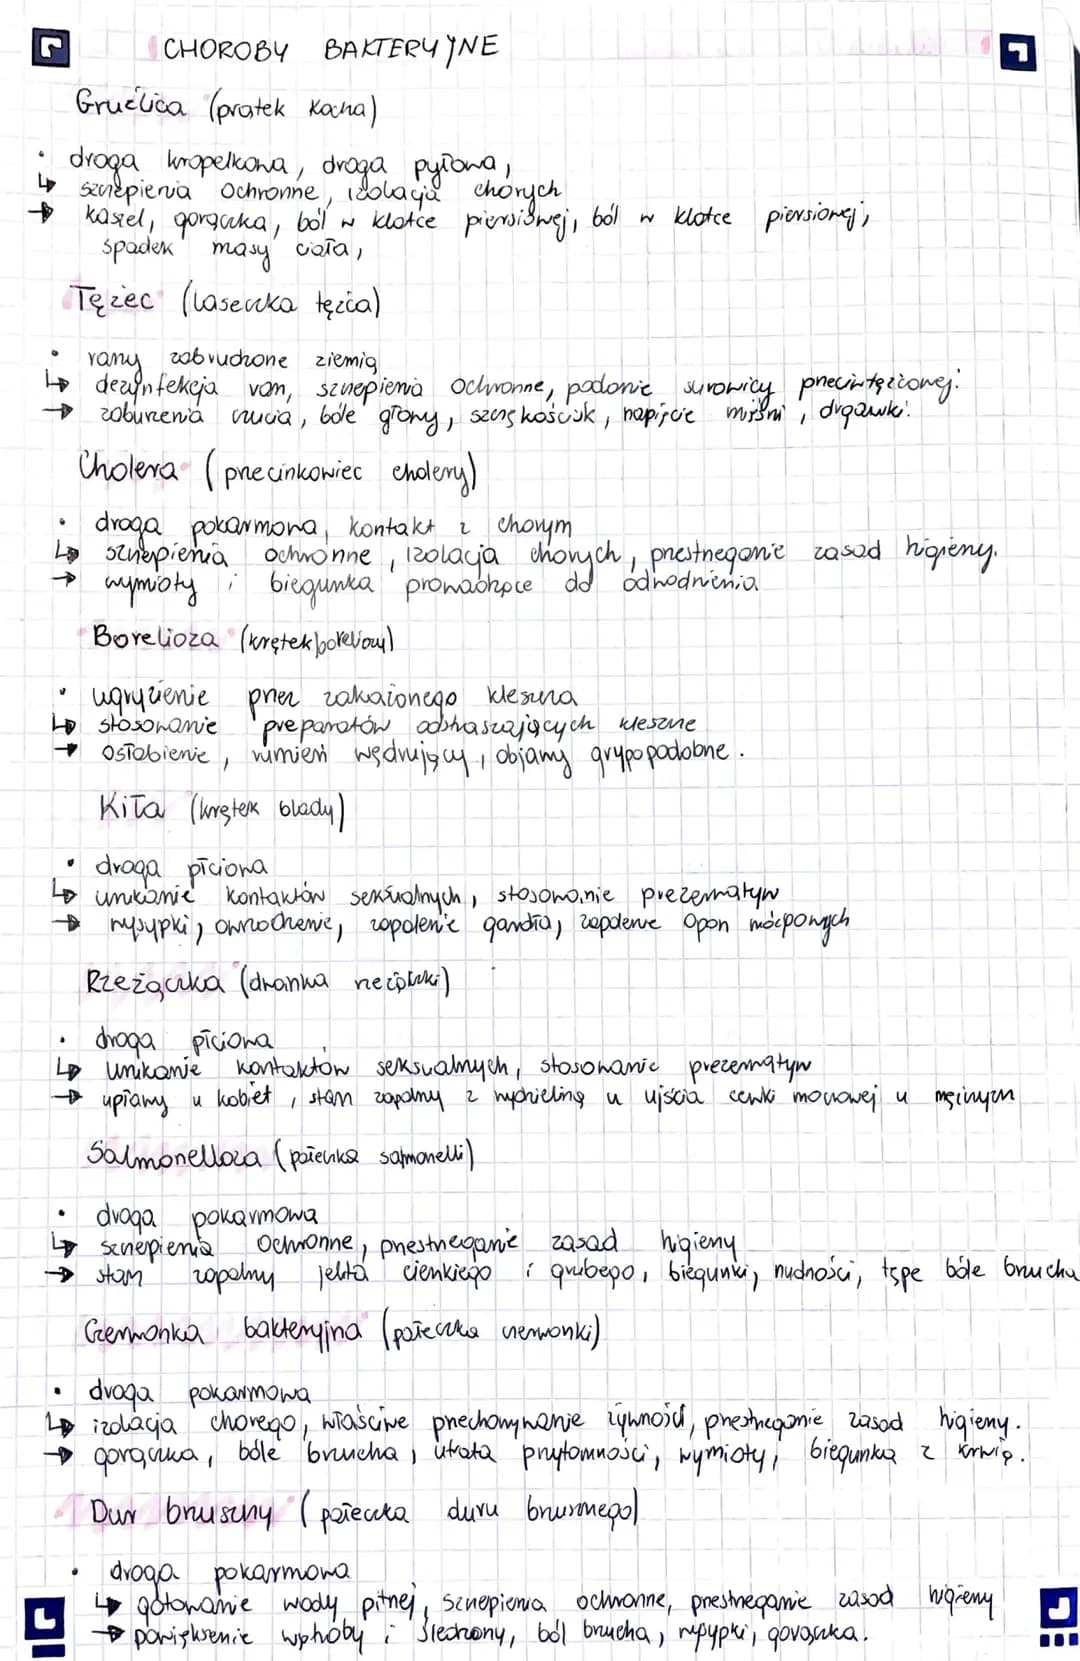 CHOROBY BAKTERYJNE
Gruźlica (prątek Kocha)
• droga kropelkowa, droga pyłowa,
↳ szczepienia ochronne, izolacja chorych
→ kaszel, gorączka, ból w klatce piersiowej, ból w klatce piersiowej,
spadek masy ciała,
Tężec (laseczka tężca)
• rany zabrudzone ziemią
↳ dezynfekcja ran, szczepienia ochronne, podanie surowicy przeciwtężcowej.
→ zaburzenia czucia, bóle głowy, szczękościsk, napięcie mięśni, drgawki.
Cholera (przecinkowiec cholery)
• droga pokarmowa, kontakt z chorym
↳ szczepienia ochronne, izolacja chorych, przestrzeganie zasad higieny.
→ wymioty i biegunka prowadzące do odwodnienia
Borelioza (krętek boreliozy)
• ugryzienie przez zakażonego kleszcza
↳ stosowanie preparatów odstraszających kleszcze
→ osłabienie, rumień wędrujący, objawy grypopodobne.
Kiła (krętek blady)
• droga płciowa
↳ unikanie kontaktów seksualnych, stosowanie prezerwatyw
→ wysypki, owrzodzenie, zapalenie gardła, zapalenie opon mózgowych
Rzeżączka (dwoinka rzeżączki)
• droga płciowa
↳ unikanie kontaktów seksualnych, stosowanie prezerwatyw
→ upławy u kobiet, stan zapalny z wydzieliną u ujścia cewki moczowej u mężczyzn
Salmonelloza (pałeczka salmonelli)
• droga pokarmowa
↳ szczepienia ochronne, przestrzeganie zasad higieny
→ stan zapalny jelita cienkiego i grubego, biegunki, nudności, tępe bóle brzucha
Czerwonka bakteryjna (pałeczka czerwonki)
• droga pokarmowa
↳ izolacja chorego, właściwe przechowywanie żywności, przestrzeganie zasad higieny.
→ gorączka, bóle brzucha, utrata przytomności, wymioty, biegunka z krwią.
Dur brzuszny (pałeczka duru brzusznego)
• droga pokarmowa
↳ gotowanie wody pitnej, szczepienia ochronne, przestrzeganie zasad higieny
→ powiększenie wątroby i śledziony, ból brzucha, wysypki, gorączka.